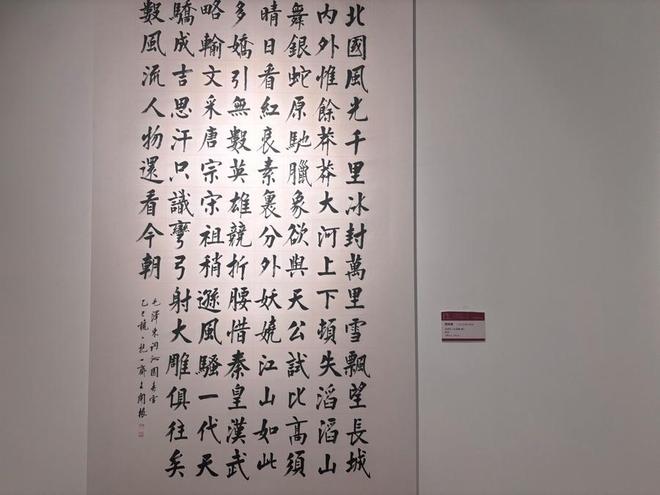 北國風光千里冰封萬里雪飄望長城
内外惟餘莽莽大河上下頓失滔滔山
舞銀蛇原馳臘象欲與天公試比高須
晴日看紅素裹分外妖嬈江山如此
多嬌引無數英雄競折腰惜秦皇漢武
略輸文采唐宗宋祖稍遜風騷一代天
驕成吉思汗只識彎弓射大雕俱往矣
數風流人物還看今朝
毛澤東詞沁園春雪
乙巳